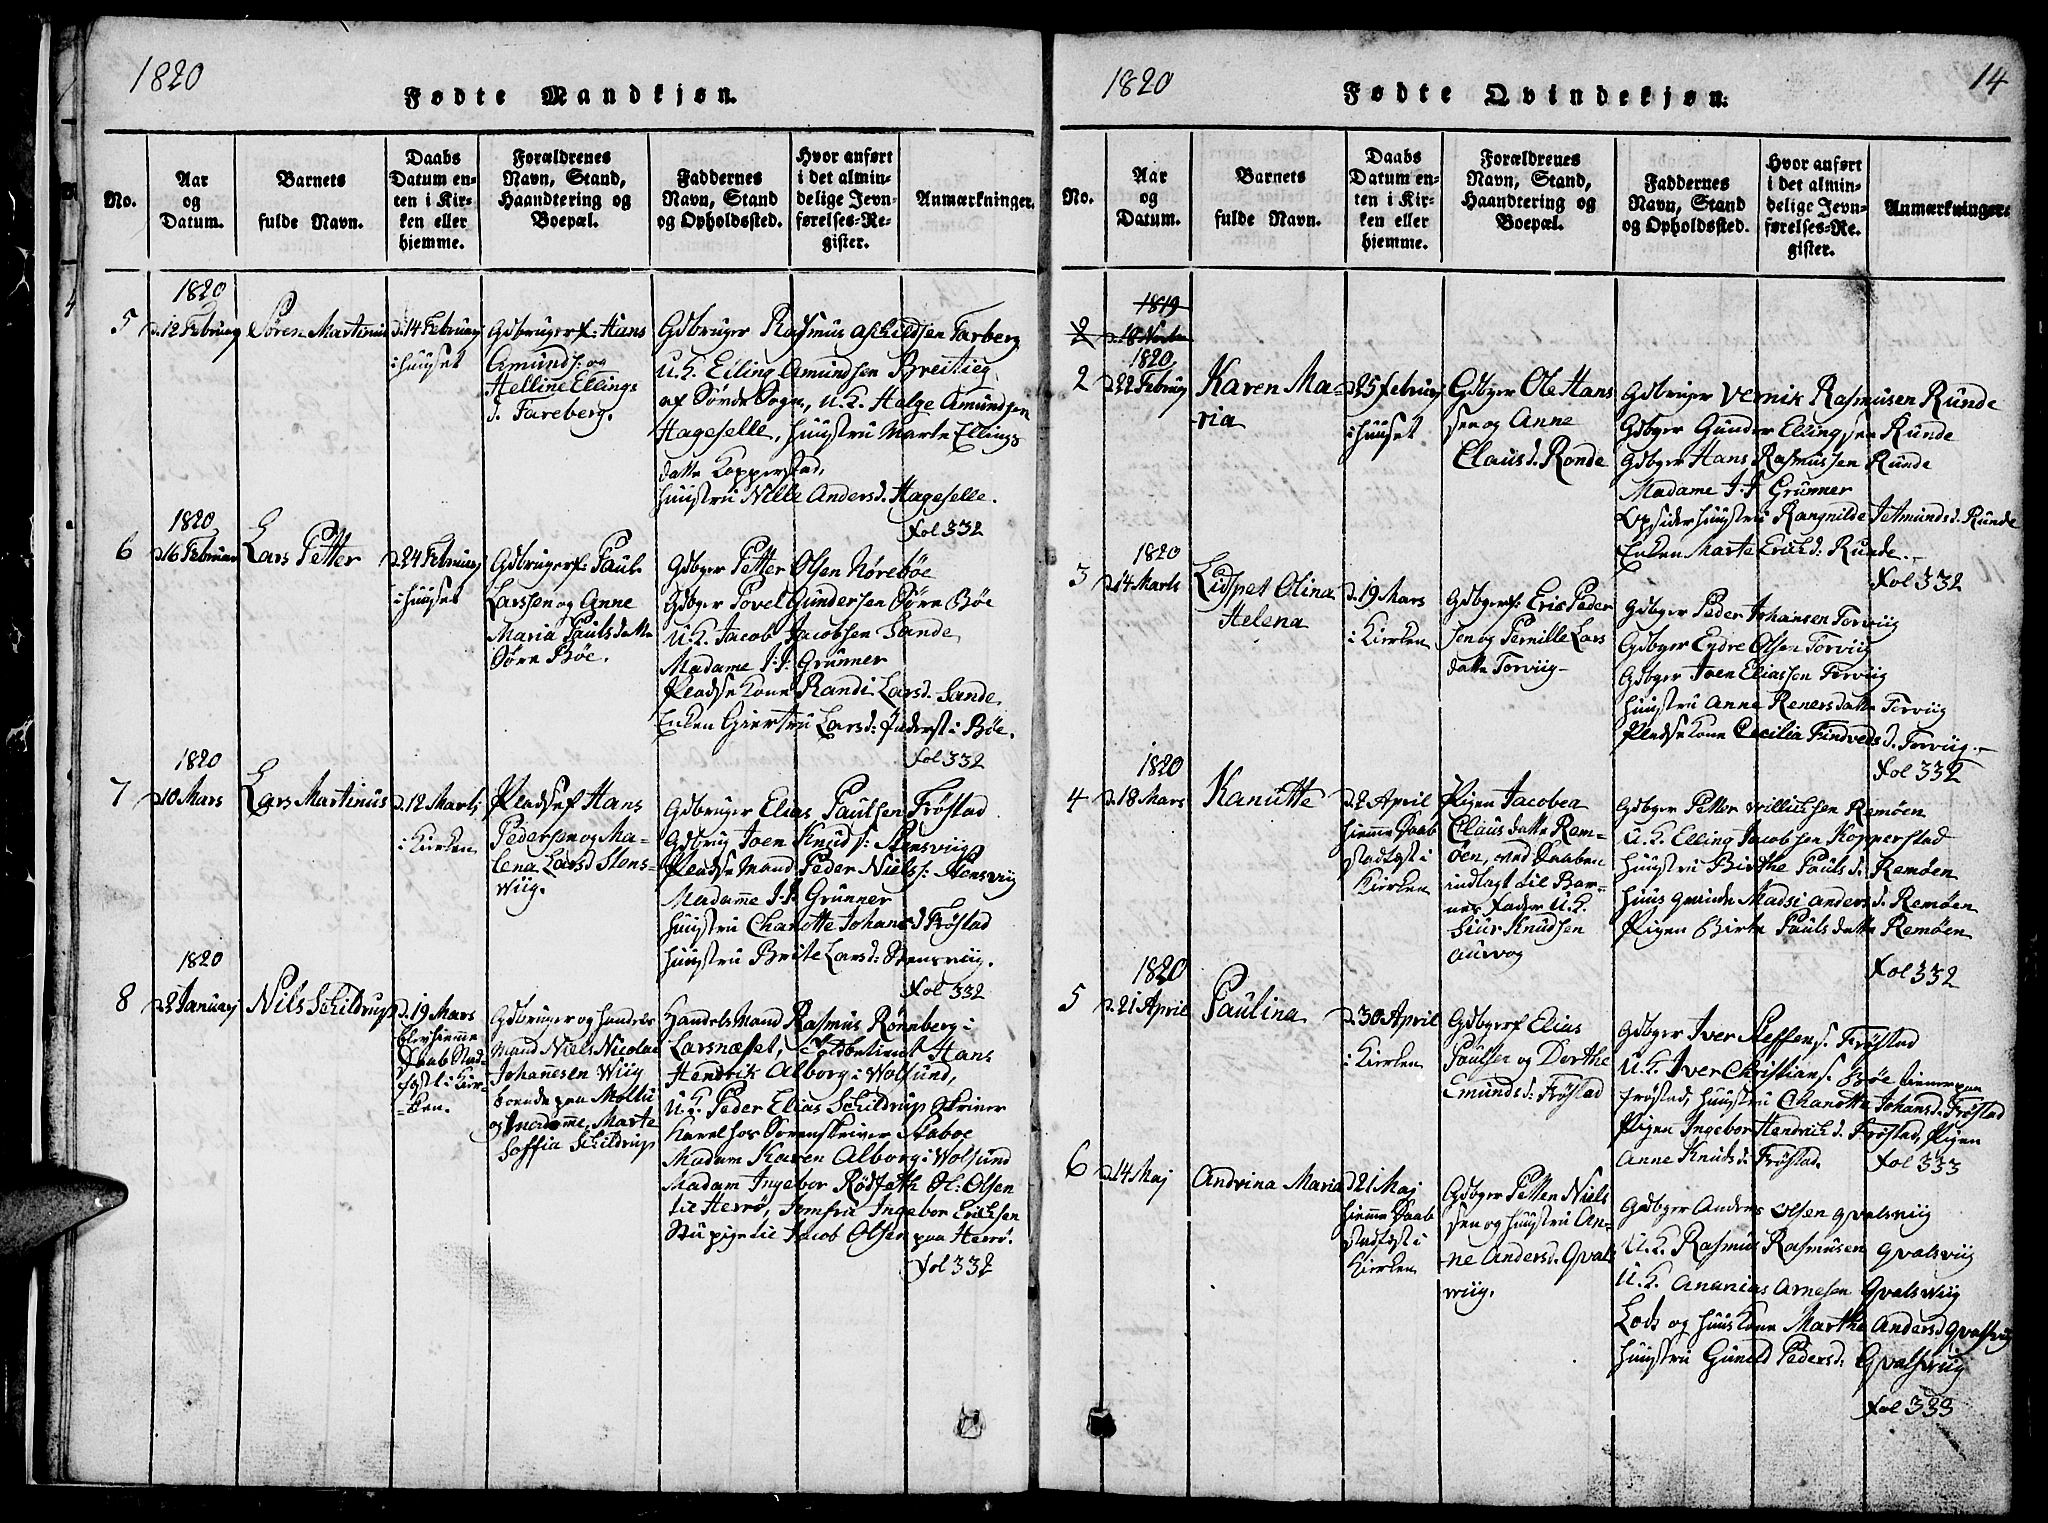 1820
Fødte Mandkjøn.
No.
Aar
og
Datum.
Barnets
fulde Navn.
Daabs
Datum en-
ten i Kir-
ken eller
hjemme.
Forældrenes
Navn, Stand,
Haandtering og
Boepæl.
Faddernes
Navn, Stand
og Opholdssted.
Hvor anført
i det almin-
delige Jevn-
førelses-Re-
gister.
Anmærkninger.
1820
5
d. 12 Februarj
Søren Martinus
d. 14 Februarj
i Huuset
Gdbruger f: Hans
Amunds: og
Helline Ellings
d. Fareberg.
Gdbruger Rasmus Farberg
U.K. Elling Amundsen Breitieg
af Sønde Sogn, U.K. Helge Amundsen
Hageselle, Huustru Marte Ellings
datte Kopperstad,
Huustru Nille Andersd. Hageselle.
Fol 332
1820
6
d. 16 Februari
Lars Petter
d. 24 Februarj
i Huuset
Gdbruger f: Paul
Larssen og Anne
Maria Pauls datte
Søre Bøe.
Gdbger Petter Olsen Nørebøe
Gdbger Povel Gundersen Søre Bøe
U.K. Jacob Jacobsen Sande
Madame J. J. Grünner
Pladse Kone Randi Larsd. Sande
Enken Giertru Larsd: i Bøe.
Fol 332
1820
7
d. 10 Mars
Lars Martinus
d. 12 Marts
i Kirken
Pladsef Hans
Pedersen og Ma-
lena Larsd Stens-
wiig.
Gdbruger Elias Paulsen Frøstad
Gdbrug Joen Knuds: Stensviig
Pladse Mand Peder Niels: Stensviig
Madame J. J. Grünner
Huustru Charlotte Johans d Frøstad
Huustru Brite Larsd: Stensviig.
Fol 332
1820
8
d. 2 Januarj
Nils Schildrup
d. 19 Mars
blev hiemme
Daab Stad-
fæst i Kir-
ken.
Gdbruger og Handels
Mand Niels Nicolai
Johannesen Wiig
boende paa Moltu
og Madamme Marte
Soffia Schildrup
Handels Mand Rasmus Rønneberg i
Larsnæset, Hans
Hendrik Alborg i Wolsund,
U.K. Peder Elias Schildrup Skriver
Karl hos Sorenskriver Aaboe
Madam Karen Alborg i Wolsund
Madam Ingebor Rødseth Ol: Olsen
til Herrø, Jomfru Ingebor Ericksen
Stu pige til Jacob Olsen paa Herrø.
Fol 332
1820
14
Fødte Qvindekjøn.
No.
Aar
og
Datum.
Barnets
fulde Navn.
Daabs
Datum en-
ten i Kir-
ken eller
hjemme.
Forældrenes
Navn, Stand,
Haandtering og
Boepæl.
Faddernes
Navn, Stand
og Opholdssted.
Hvor anført
i det almin-
delige Jevn-
førelses-Re-
gister.
Anmærkninger.
1819
2
1820
2
d. 22 Februarj
Karen Ma-
ria
d. 25 Februarj
i Huuset
Gdbger Ole Hans
sen og Anne
Claus d. Ronde
Gdbruger Vernik Rasmusen Runde
Gdbger Gunder Ellingsen Runde
Gdbger Hans Rasmussen Runde
Madame J. J. Grünner
Huustru Rangnilde Jetmundsd. Runde
Enken Marte Ericksd: Runde.
Fol 332
1820
3
d. 14 Marts
Lidspet Olina
Helena
d. 19 Mars
i Kirken
Gdbger f: Eric Peder
sen og Pernille Lars
datte Torviig
Gdbger Peder Johansen Torviig
Gdbger Endre Olsen Torviig
Gdbger Joen Eliassen Torviig
Huustru Anne Reners datte Torviig
Pladse Kone Cecilia Findveds d. Torviig.
Fol 332
1820
4
d. 18 Mars
Kanutte
d. 2 April
hiemme Daab
stadfæst i
Kirken
Pigen Jacobea
Claus datte Rem-
øen, ved Daaben
indlagt til Bar-
nes Fader U.K.
Siur Knudsen
aurvog
Gdbger Petter Willicksen Remøen
U.K. Elling Jacobsen Kopperstad
Huustru Birthe Pauls d: Remøen
Huus qvinde Madsi anders d. Remøen
Pigen Birte Pauls datte Remøen
Fol 332
1820
5
d. 21 April
Paulina
d. 30 April
i Kirken
Gdbger f Elias
Paulsen og Dorthe
Emundsd: Frøstad
Gdbger Iver Steffens: Frøstad
U.K. Iver Christians: Bøe tiener paa
Frøstad, Huustru Charlotte Johansd. Frøstad
Pigen Ingebor Hendriksd. Frøstad, Pigen
Anne Knudsd: Frøstad.
Fol 333
6
d. 14 Maj
Andrina Maria
d. 21 Maj
hiemme Daab
stadfæst i
Kirken
Gdbger Petter Niels
sen og Huustru An-
ne Andersd. Qvals
wiig.
Gdbger Anders Olsen Qvalsviig
U.K. Rasmus Rasmusen Qvalsviig
U.K. Ananias Arnesen Qvalswiig
Lods og Huus Kone Marthe Andersd Qvalsviig
Huustru Gunild Pedersd: Qvalsviig
Fol 333